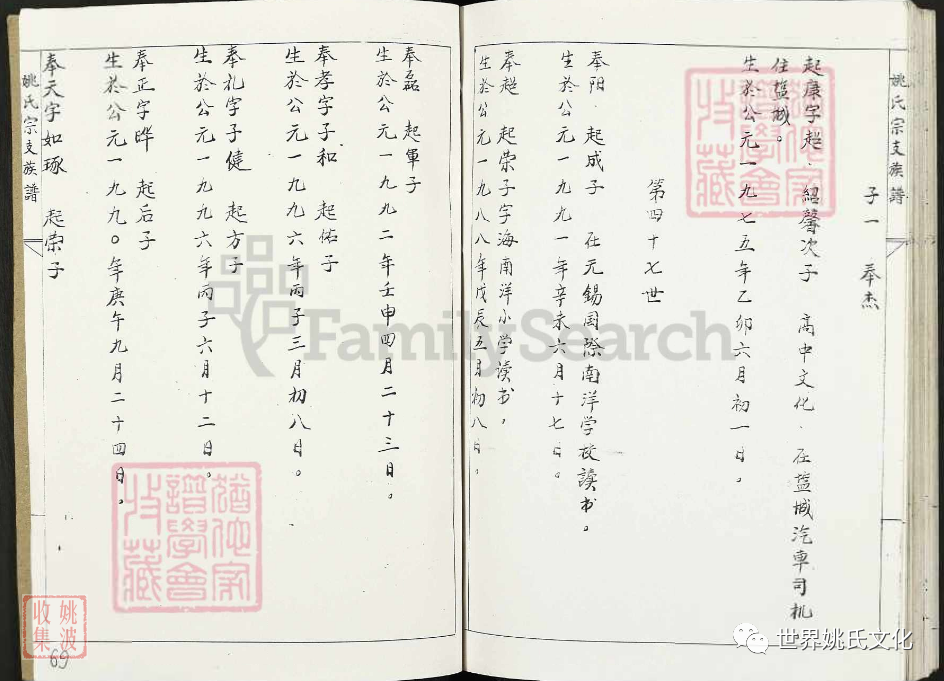 姚氏宗支族譜
子一 奉杰
起康字超.紹馨次子 高中文化.在盐城汽車司机
住盐城。
生於公元一九七五年乙卯六月初一日。
第四十七世
奉阳.起成子 在元錫国際南洋学校讀书。
生於公元一九九一年辛未六月十七日。
奉超 起荣子字海南洋小学读书,
生於公元一九八八年戊辰五月初八日.
奉磊 起軍子
生於公元一九九二年壬申四月二十三日。
奉孝字子和 起佑子
生於公元一九九六年丙子三月初八日。
奉礼字子健 起方子
生於公元一九九六年丙子六月十二日。
奉正字晔 起后子
生於公元一九九〇年庚午九月二十四日。
奉天字如琢 起荣子
姚氏宗支族譜
69
姚波
收集
FamilySearch
世界姚氏文化